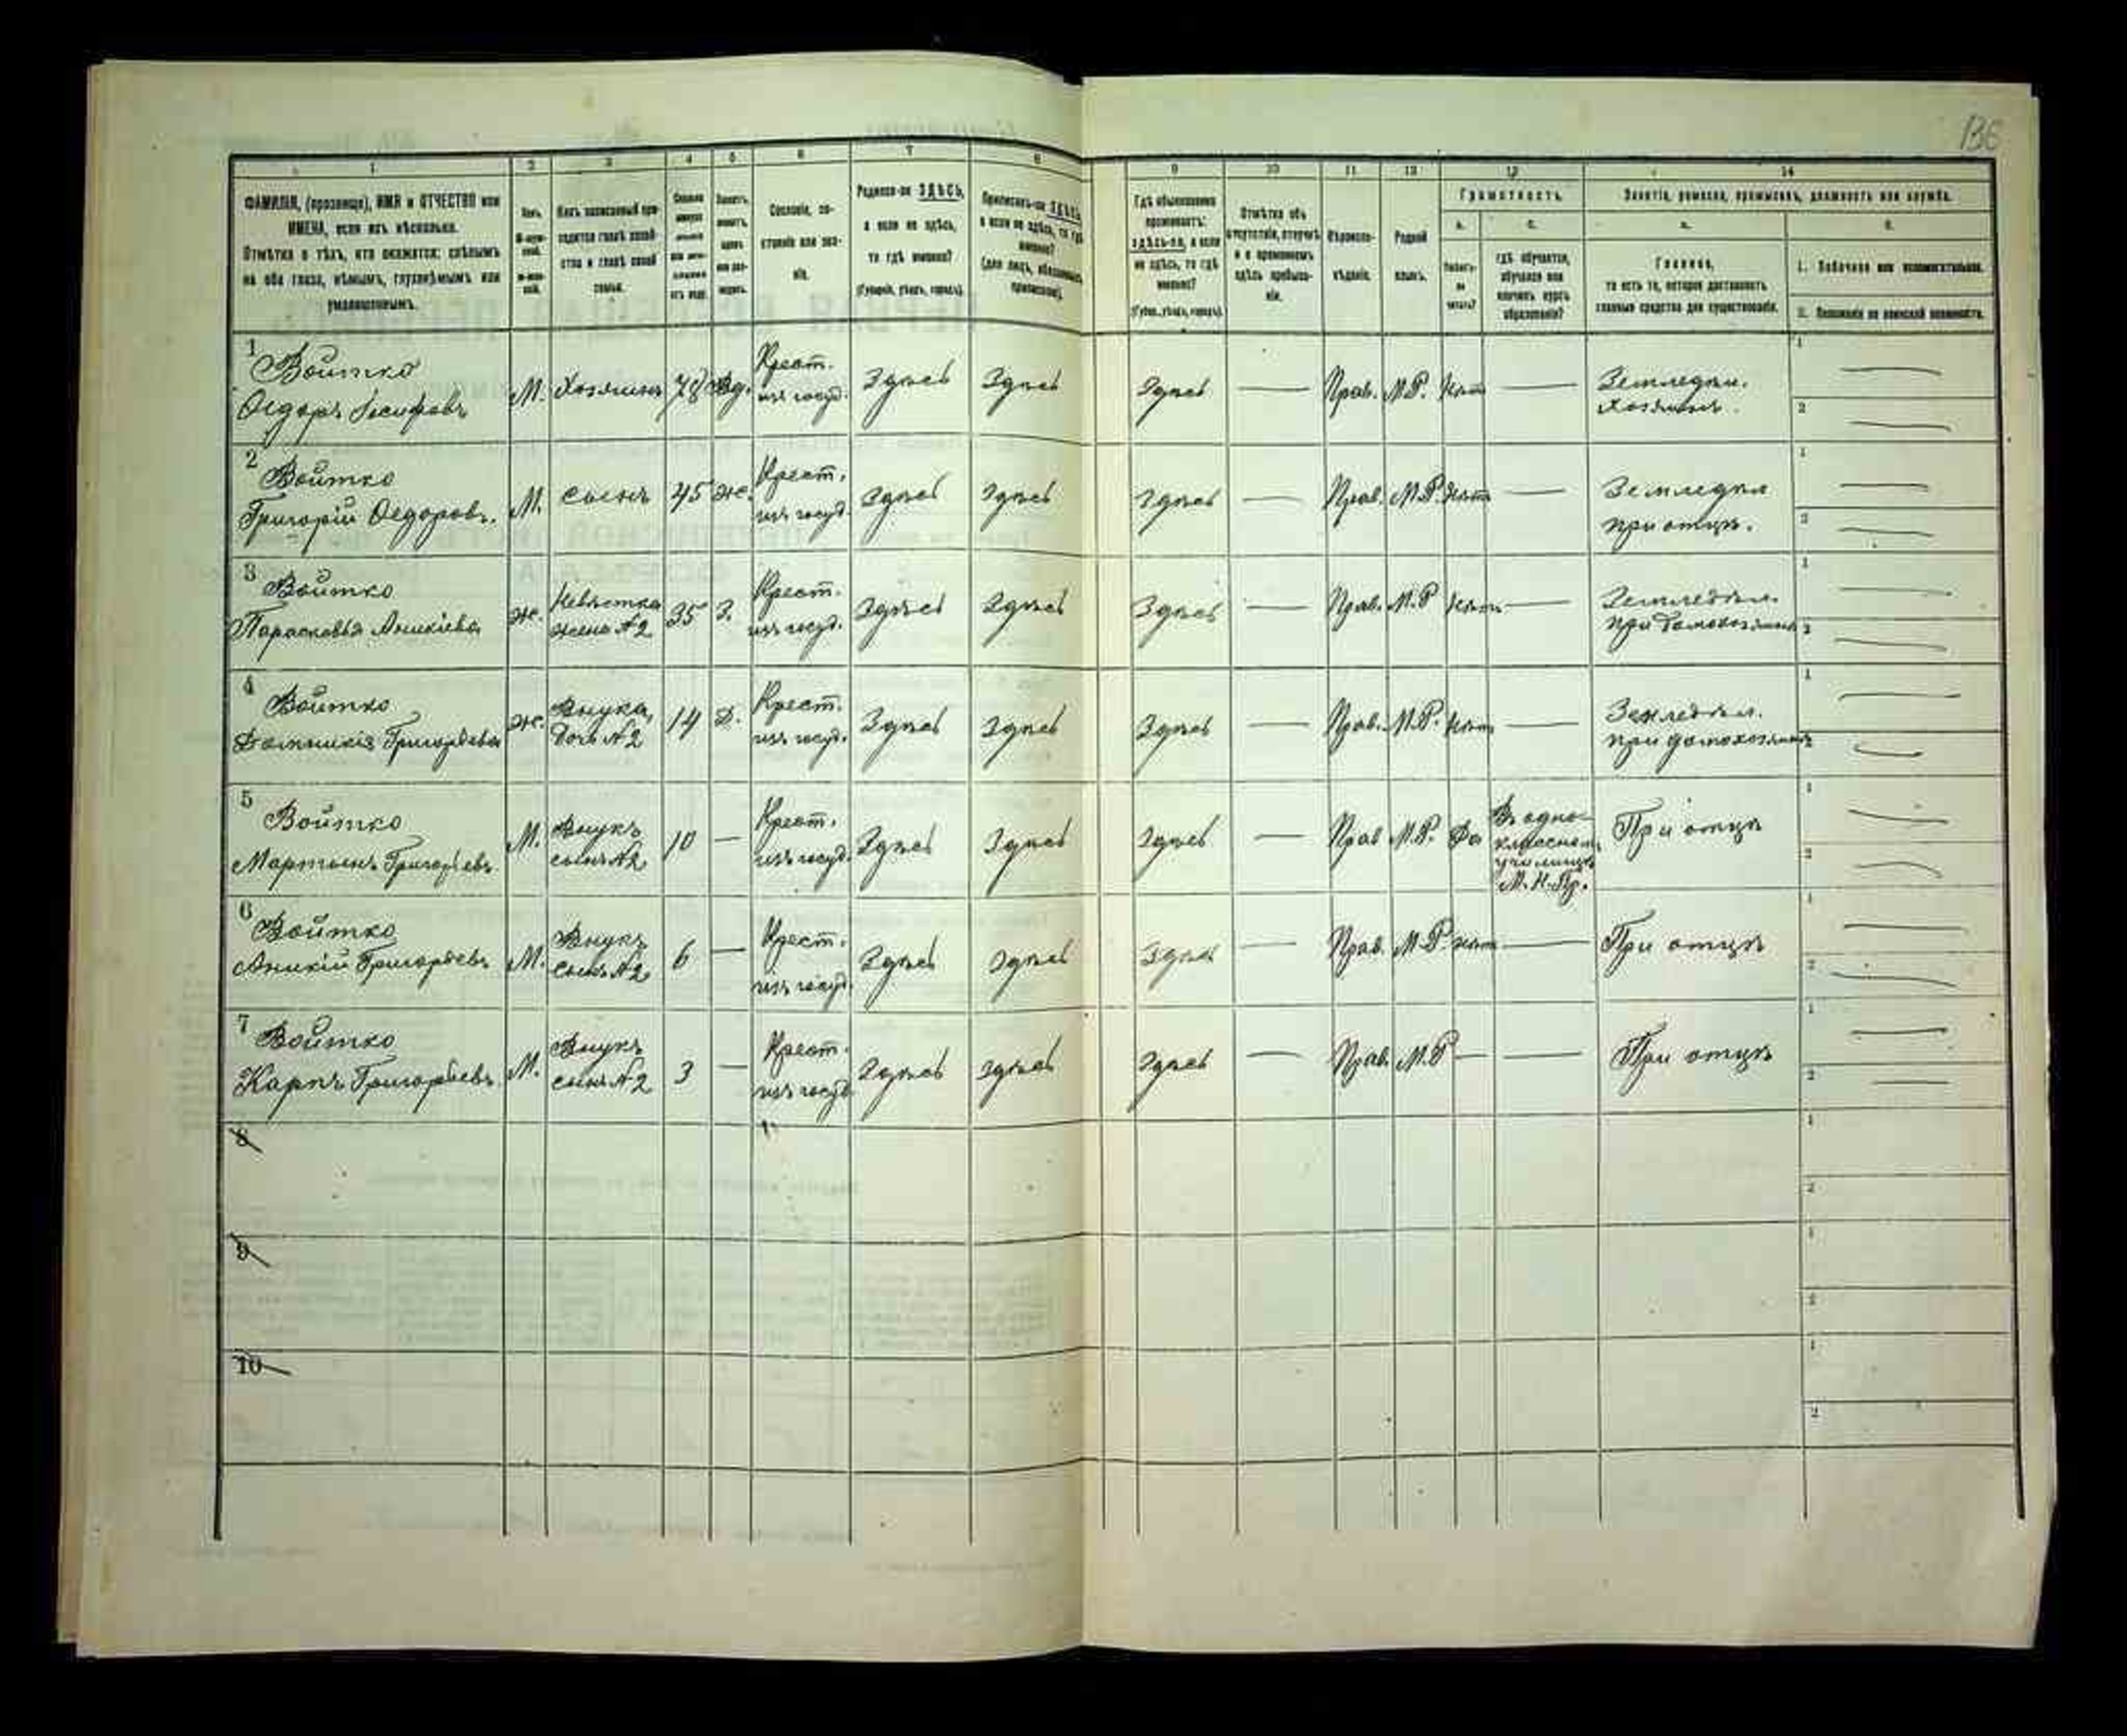 136
1 2 3 4 5 6 7 8 9 10 11 12 13 14
ФАМИЛІЯ, (прозвище), ИМЯ и ОТЧЕСТВО или
ИМЕНА, если ихъ нѣсколько.
Отмѣтка о тѣхъ, кто окажется: слѣпымъ
на оба глаза, нѣмымъ, глухонѣмымъ или
умалишеннымъ.
Сословіе, со-
стояніе или зва-
ніе.
Родился-ли ЗДѢСЬ,
а если не здѣсь,
то гдѣ именно?
(Губернія, уѣздъ, городъ).
Гдѣ обыкновенно
проживаетъ:
здѣсь-ли, а если
не здѣсь, то гдѣ
именно?
(Губер., уѣздъ, городъ).
Отмѣтка объ
отсутствіи, отлучкѣ
и о временномъ
здѣсь пребыва-
ніи.
Вѣроиспо-
вѣданіе.
Родной
языкъ.
Грамотность.
а. б.
Умѣетъ-
ли
читать?
гдѣ обучается,
обучался или
кончилъ курсъ
образованія?
Занятіе, ремесло, промыселъ, должность или служба.
а. б.
Главное,
то есть то, которое доставляетъ
главныя средства для существованія.
I. Побочное или вспомогательное.
II. Положеніе по воинской повинности.
1 Войтко
Ѳедоръ Іосифовъ
М. Хозяинъ 78 Вд. Крест.
изъ госуд. Здѣсь Здѣсь Здѣсь — Прав. М.Р. Нѣтъ — Земледѣл.
Хозяинъ.
2 Войтко
Григорій Ѳедоровъ.
М. сынъ 45 Ж. Крест.
изъ госуд. Здѣсь Здѣсь Здѣсь — Прав. М.Р. Нѣтъ — Земледѣл
при отцѣ.
3 Войтко
Парасковья Аникіева
Ж. Невѣстка
жена №2 35 З. Крест.
изъ госуд. Здѣсь Здѣсь Здѣсь — Прав. М.Р Нѣтъ — Земледѣл.
при домохозяинѣ
4 Войтко
Григорьева
Ж. Внука,
дочь №2 14 Д. Крест.
изъ госуд. Здѣсь Здѣсь Здѣсь — Прав. М.Р. Нѣтъ — Земледѣл.
при домохозяинѣ
5 Войтко
Мартынъ Григорьевъ
М. Внукъ
сынъ №2 10 — Крест.
изъ госуд. Здѣсь Здѣсь Здѣсь — Прав М.Р. Да Въ одно-
класномъ
училищѣ
М.Н.Пр. При отцѣ
6 Войтко
Аникій Григорьевъ
М. Внукъ
сынъ №2 6 — Крест.
изъ госуд. Здѣсь Здѣсь Здѣсь — Прав. М.Р. Нѣтъ — При отцѣ
7 Войтко
Карпъ Григорьевъ
М. Внукъ
сынъ №2 3 — Крест.
изъ госуд. Здѣсь Здѣсь Здѣсь — Прав. М.Р — — При отцѣ
8
9
10